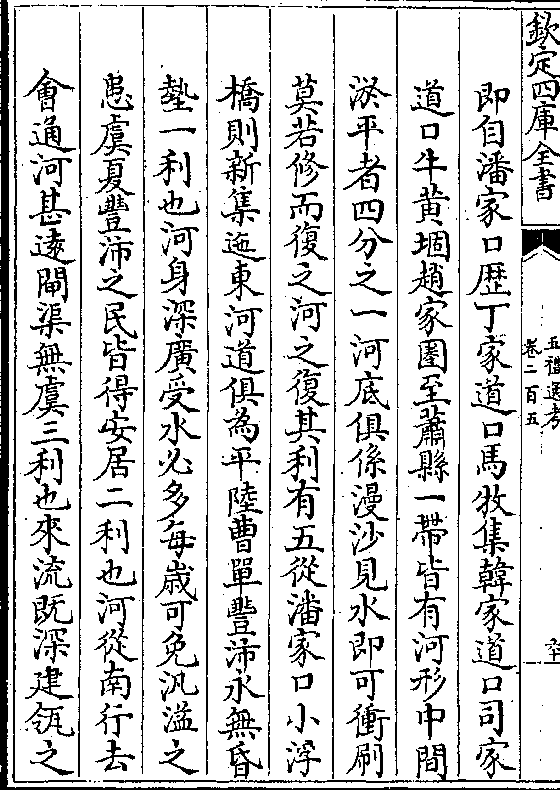 欽定四庫全書
五禮通考
卷二百五
即自潘家口歴丁家道口馬牧集韓家道口司家
道口牛黄堌趙家圏至蕭縣一帶皆有河形中間
淤平者四分之一河底俱係漫沙見水即可衝刷
莫若修而復之河之復其利有五從潘家口小浮
橋則新集迤東河道俱為平陸曹單豐沛永無昏
墊一利也河身深廣受水必多每嵗可免汎溢之
患虞夏豐沛之民皆得安居二利也河從南行去
㑹通河甚逺閘渠無虞三利也來流既深建瓴之